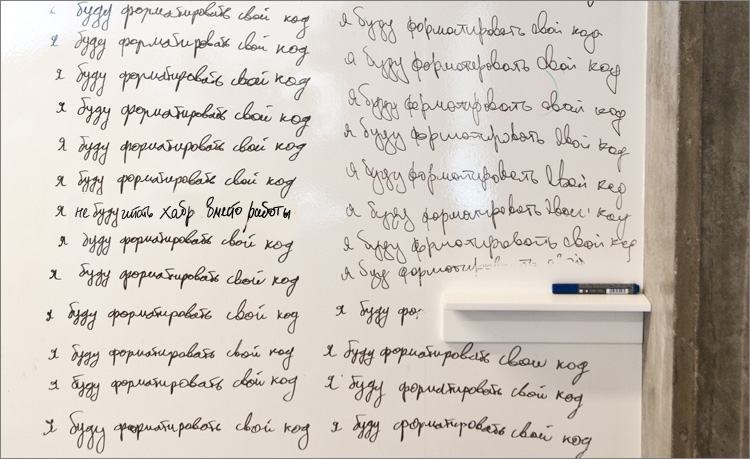 я буду форматировать свой код
я буду форматировать свой код
я буду форматировать свой код
я буду форматировать свой код
я буду форматировать свой код
я буду форматировать свой код
я не буду читать хабр вместо работы
я буду форматировать свой код
я буду форматировать свой код
я буду форматировать свой код
я буду форматировать свой код
я буду форматировать свой код
я буду форматировать свой код
я буду форматировать свой код
я буду форматировать свой код
я буду форматировать свой код
я буду форматировать свой код
я буду форматировать свой код
я буду форматировать свой код
я буду форматировать свой код
я буду
я буду
я буду форматировать свой код
я буду форматировать свой код
я буду форматировать свой код